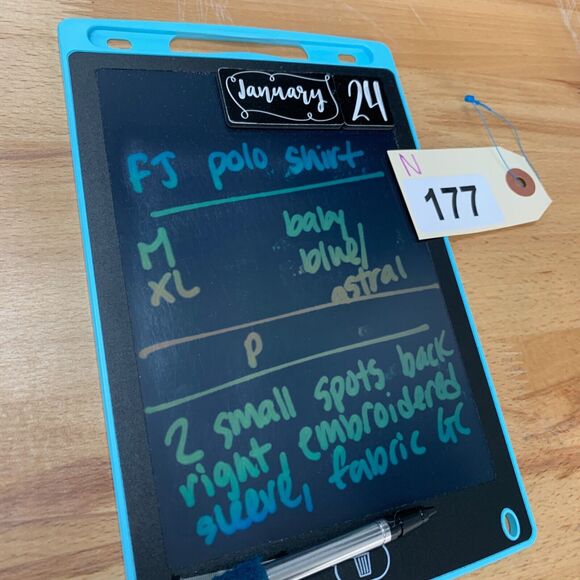 January 24
FJ polo shirt
N
177
M baby
XL blue/
astral
P
2 small spots back
right embroidered
sleeve, fabric GC